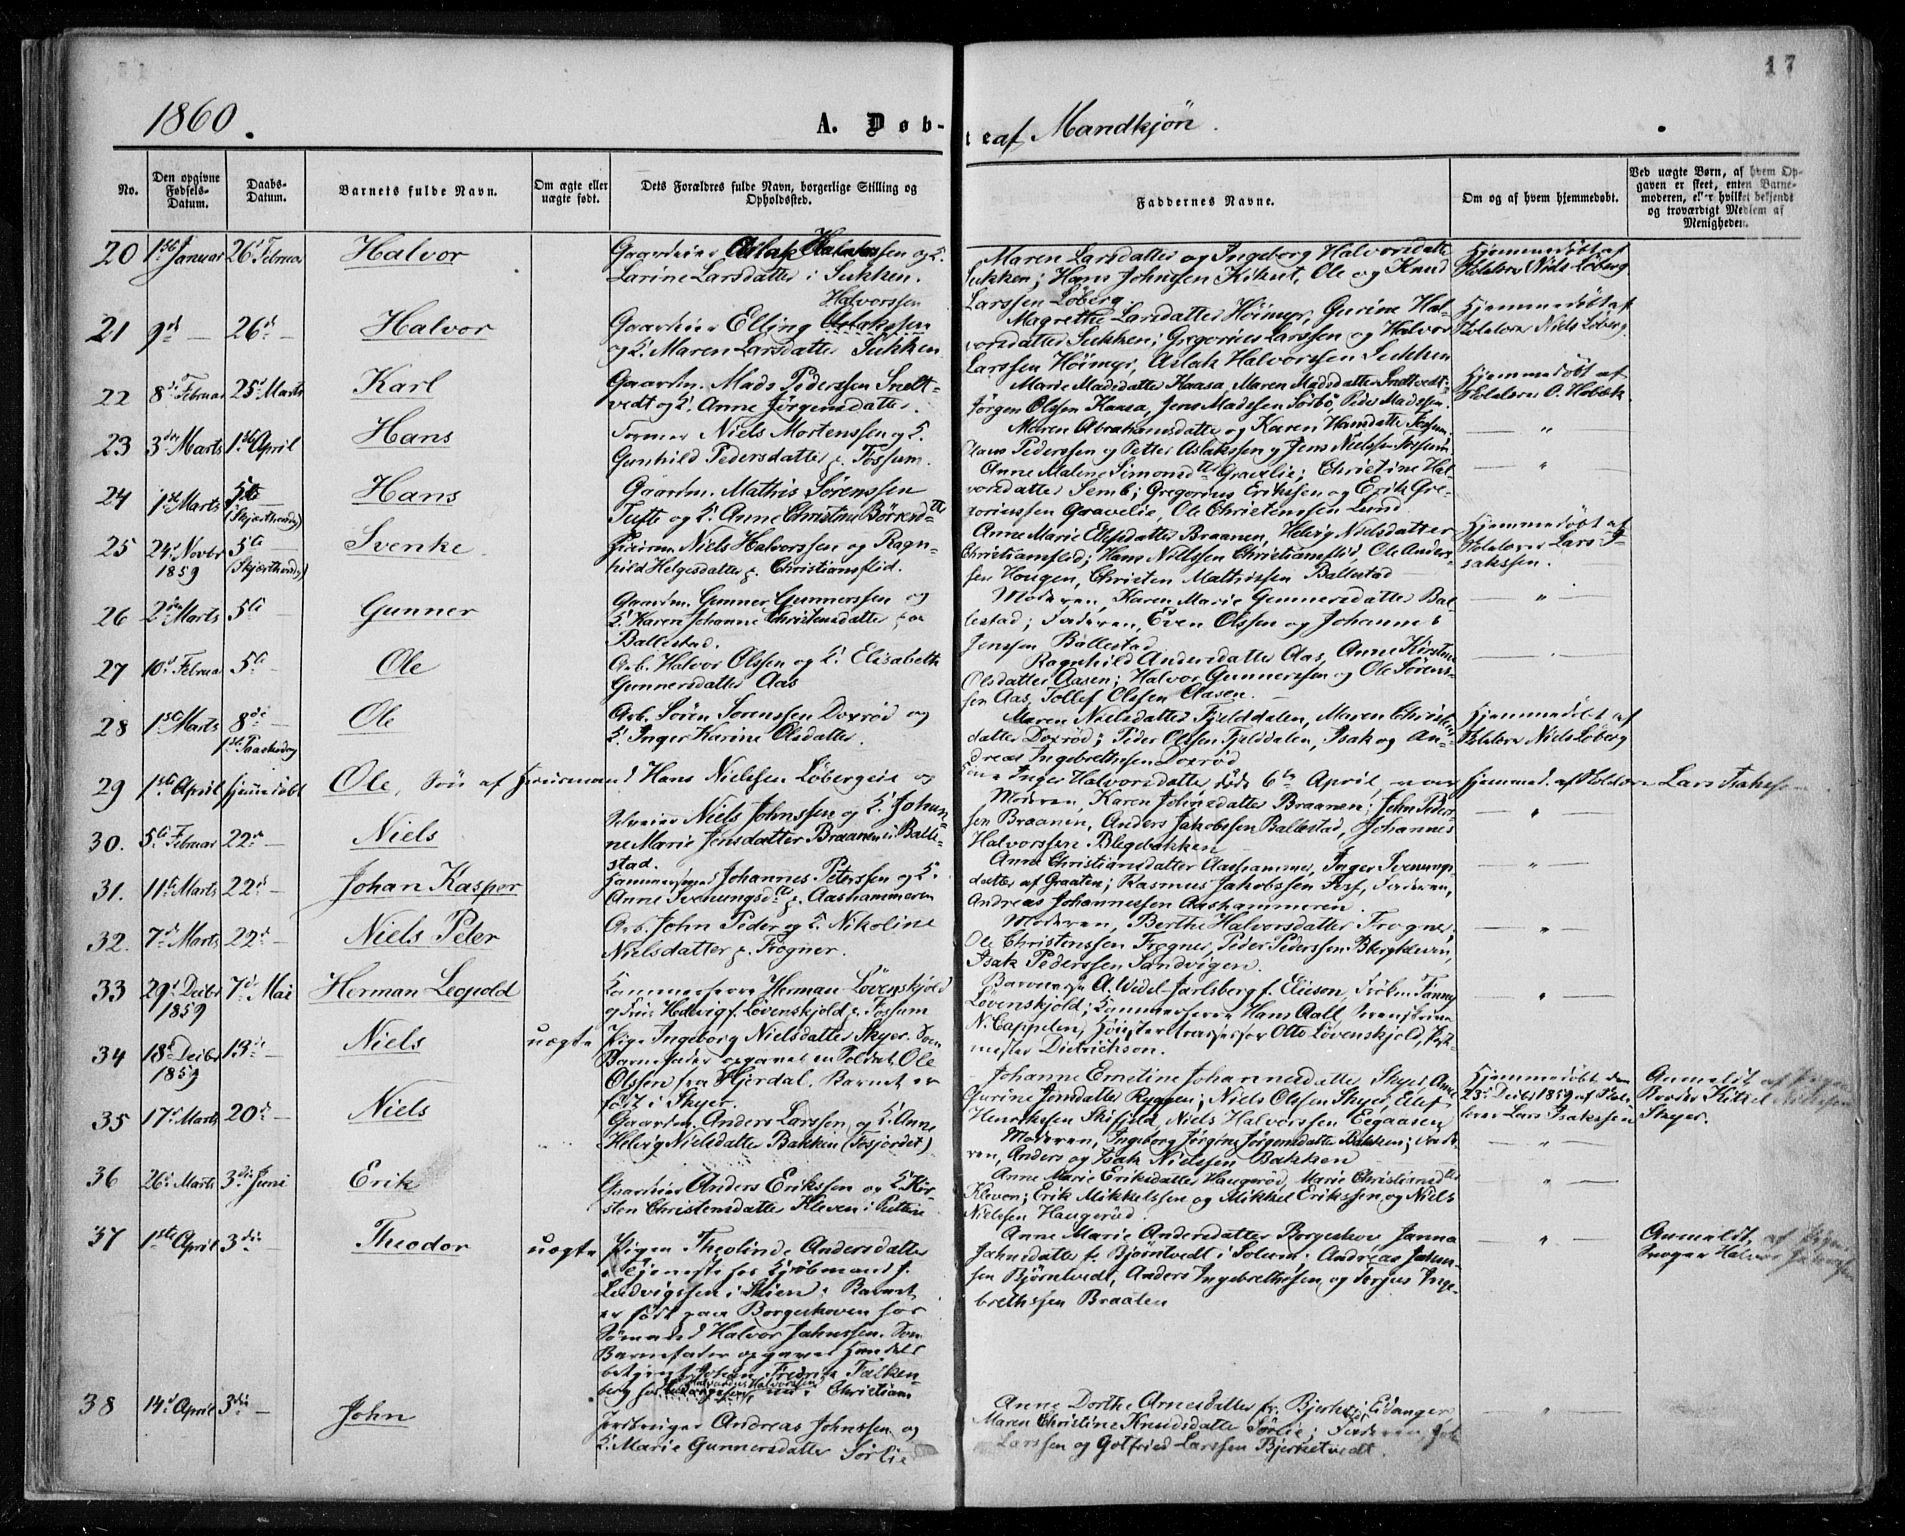 17
1860.
A. Døb-
te af Mandkjøn.
No.
Den opgivne Fødsels-Datum.
Daabs-Datum.
Barnets fulde Navn.
Om ægte eller uægte født.
Dets Forældres fulde Navn, borgerlige Stilling og Opholdssted.
Faddernes Navne.
Om og af hvem hjemmedøbt.
Ved uægte Børn, af hvem Op-
gaven er skeet, enten Barne-
moderen, eller hvilket bekjendt
og troværdigt Medlem af
Menigheden.
20 1ste Januar 26d Februar Halvor
Gaardeier Aslak Halvorssen og K.
Larine Larsdatter i Sukken.
Maren Larsdatter og Ingeborg Halvorsdatter
Sukken; Hans Johnsen Kikut, Ole og Knud
Larssen Løberg.
Hjemmedøbt af
Skolelærer Niels Løberg.
21 9de — 26d — Halvor
Halvorssen
Gaardeier Elling
og K. Maren Larsdatter Sukken
Magrethe Larsdatter Høimyr, Gurine Hal-
vorsdatter Sukken; Gregorius Larssen og Halvor
Larssen Høimyr, Aslak Halvorssen Sukken
Hjemmedøbt af
Skolelærer Niels Løberg.
22 8d Februar 25d Marts Karl
Gaardm. Mads Pederssen Snelt-
vedt og K. Anne Jørgensdatter.
Marie Madsdatter Kaasa, Maren Madsdatter Sneltvedt
Jørgen Olssen Kaasa, Jens Madssen Sørbø, Peder Madssen.
Hjemmedøbt af
Skolelærer O. Hobæk.
23 3die Marts 1ste April Hans
Former Niels Mortenssen og K.
Gunhild Pedersdatter p. Fossum.
Maren Abrahamsdatter og Karen Hansdatter Fossum
Hans Pederssen og Petter Aslakssen og Jens Nielssen Fossum
— " —
24 1ste Marts 5te — (Skjærthorsdag) Hans
Gaardm. Mathis Sørenssen
Tufte og K. Anne Christine Børresdtr
Anne Malene Simonsdtr Gravelie; Christine Hal-
vorsdatter Semb; Gregorius Erikssen og Erik Gre-
goriussen Gravelie, Ole Christenssen Lund.
— " —
25 24d Novbr 1859 5te (Skjærthorsdag) Svenke
Niels Halvorssen og Ragn-
hild Helgesdatter p. Christiansfled.
Anne Marie Ellefsdatter Braanen, Helvig Nielsdatter
Christiansfled; Hans Nielssen Christiansfled, Ole Anders-
sen Hougen, Christen Mathissen Ballestad
Hjemmedøbt af
Skolelærer Lars I-
sakssen.
26 2den Marts 5te — Gunner
Gaardm. Gunner Gunnerssen og
K. Karen Johanne Christensdatter paa
Ballestad.
Moderen, Karen Marie Gunnersdatter Bal-
lestad; Faderen, Even Olssen og Johannes
Jenssen Ballestad.
— " —
27 10d Februar 5te — Ole
Arb. Halvor Olssen og K. Elisabeth
Gunnersdatter Aas
Ragnhild Andersdatter Aas, Anne Kirstine
Olsdatter Aasen; Halvor Gunnerssen og Ole Sørens-
sen Aas, Tollef Olssen Aasen.
28 1ste Marts 8de — 1ste Paaskedag Ole
Arb. Søren Sørenssen Doxrød og
K. Inger Karine Olsdatter.
Maren Nielsdatter Fjelddalen, Maren Christens-
datter Doxrød; Peder Olssen Fjelddalen, Isak og An-
dreas Ingebrethssen Doxrød
Hjemmedøbt af
Skolelærer Niels Løberg
29 1ste April hjemmedøbt Ole, Søn af Huusmand Hans Nielssen Løbergeie og
Kone Inger Halvorsdatter, død 6te April, var hjemmed. af Skolelærer Lars Isakssen
30. 5te Februar 22de — Niels
Selveier Niels Johnssen og K. Johan-
ne Marie Jensdatter Braanen i Balle-
stad.
Moderen, Karen Johnsdatter Braanen; John Peders-
sen Braanen, Anders Jakobssen Ballestad, Johannes
Halvorssen Blegebakken
— " —
31. 11te Marts 22d — Johan Kasper
Hammersmed Johannes Peterssen og K.
Anne Svenungsdtr p. Aashammeren
Anne Christiansdatter Aashammer, Inger Svenungs-
datter af Graaten; Rasmus Jakobssen Foss, Faderen,
Andreas Johannessen Aashammeren.
— " —
32. 7de Marts 22d — Niels Peter
Arb. John Peder og K. Nikoline
Nielsdatter p. Frogner.
Moderen, Berthe Halvorsdatter Frogner;
Ole Christenssen Frogner, Peder Pederssen Bergkleven,
Isak Pederssen Sandvigen.
— " —
33 29d Decbr 1859 7de Mai Herman Leopold
Kammerherre Herman Løvenskjold
og Frue Hedvig f. Løvenskjold p. Fossum
Baronesse A. Wedel-Jarlsberg f. Elieson, Frøken Fanny
Løvenskjold; Kammerherre Hans Aall,
N. Cappelen, Høiesteretsassessor Otto Løvenskjold,
Dietrichson.
— " —
34 18d Decbr 1859 13de — Niels uægte
Pige Ingeborg Nielsdatter Skyer. Som
Barnefader opgivet en Soldat Ole
Olssen fra Hjerdal. Barnet er
født i Skyer.
Johanne Emeline Johannesdatter Skyer, Anne
Gurine Jensdatter Ryggen; Niels Olssen Skyer, Ellef
Henrikssen Skifjeld, Niels Halvorssen Eegaasen
Hjemmedøbt den
23d Decbr 1859 af Skole-
lærer Lars Isakssen
Anmeldt af Pigens
Broder Kittel Nielssen
Skyer.
35 17d Marts 20d — Niels
Gaardm. Anders Larssen og K. Anne
Helvig Nielsdatter Bakken (Fosjordet)
Moderen, Ingeborg Jørgine Jørgensdatter Bakken; Fade-
ren, Anders og Isak Nielssen Bakken
— " —
36 26d Marts 3die Juni Erik
Gaardeier Anders Erikssen og K. Kir-
sten Christensdatter Kleven i
Anne Marie Eriksdatter Haugerød, Marie Christiansdtr
Kleven; Erik Mikkelssen og Mikkel Erikssen, og Niels
Nielssen Haugerød.
— " —
37 1ste April 3die — Theodor uægte
Pigen Theolinde Andersdatter
i Tjeneste hos Kjøbmand J.
Ludvigssen i Skien. Barnet
er født paa Borgeskoven hos
Sømand Halvor Jahnssen. Som
Barnefader opgivet Handels
betjent Johan Fredrik Falken-
berg hos Halvor Halvorssen nu i Christian
Anne Marie Andersdatter Borgeskov, Janna
Jahnsdatter fr. Bjørntvedt i Solum; Andreas Jahns-
sen Bjørntvedt, Anders Ingebrethssen og Serjus Inge-
brethssen Braaten
— " —
Anmeldt af Pigens
Svoger Halvor Jahnssen
38 14d April 3die — John
Jordbruger Andreas Johnssen og
K. Marie Gunnersdatter Sørlie
Anne Dorthe Arnesdatter fr. Bjerke i Eidanger,
Maren Christine Knudsdatter Sørlie; Faderen,
Larssen og Gotfried Larssen Bjerketvedt.
— " —